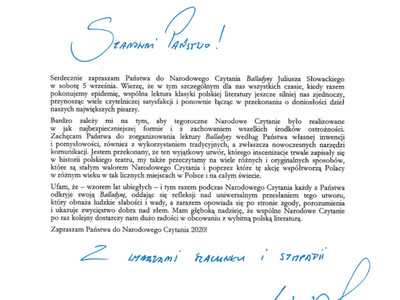 Szanowni Państwo!
Serdecznie zapraszam Państwa do Narodowego Czytania Balladyny Juliusza Słowackiego
w sobotę 5 września. Wierzę, że w tym szczególnym dla nas wszystkich czasie, kiedy razem
pokonujemy epidemię, wspólna lektura klasyki polskiej literatury jeszcze silniej nas zjednoczy,
przynosząc wiele czytelniczej satysfakcji i ponownie łącząc w przekonaniu o doniosłości dzieł
naszych największych pisarzy.
Bardzo zależy mi na tym, aby tegoroczne Narodowe Czytanie było realizowane
w jak najbezpieczniejszej formie i z zachowaniem wszelkich środków ostrożności.
Zachęcam Państwa do zorganizowania lektury Balladyny według Państwa własnej inwencji
i pomysłowości, również z wykorzystaniem tradycyjnych, a zwłaszcza nowoczesnych narzędzi
komunikacji. Jestem przekonany, że ten wyjątkowy utwór, którego inscenizacje trwale zapisały się
w historii polskiego teatru, my także przeczytamy na wiele różnych i oryginalnych sposobów,
które są stałym walorem Narodowego Czytania i poprzez które tę akcję współtworzą Polacy
w różnym wieku w tak licznych miejscach w Polsce i na całym świecie.
Ufam, że – wzorem lat ubiegłych – i tym razem podczas Narodowego Czytania każdy z Państwa
odkryje swoją Balladynę, oddając się refleksji nad uniwersalnym przesłaniem tego utworu,
który obnaża ludzkie słabości i wady, a zarazem opowiada się po stronie zgody, porozumienia
i ukazuje zwycięstwo dobra nad złem. Mam głęboką nadzieję, że wspólne Narodowe Czytanie
po raz kolejny dostarczy nam dużo radości w obcowaniu z wybitną polską literaturą.
Zapraszam Państwa do Narodowego Czytania 2020!
Z wyrazami szacunku i sympatii